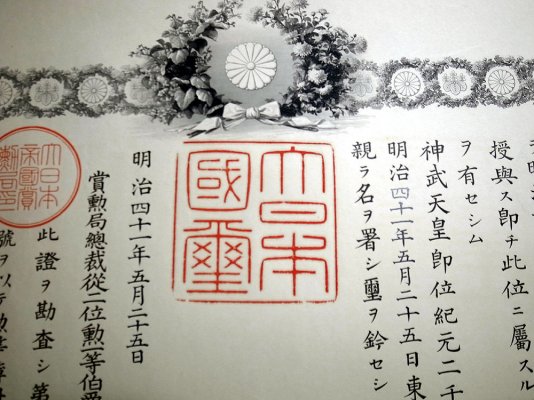 授與ス即チ此位ニ屬スル
ヲ有セシム
神武天皇即位紀元二千
明治四十一年五月二十五日東
親ラ名ヲ署シ璽ヲ鈐セシ
大日本
國璽
明治四十一年五月二十五日
賞勲局總裁從二位勲一等伯
大日本
帝國賞
勳局印
此證ヲ勘査シ第
號ヲ以テ勲等